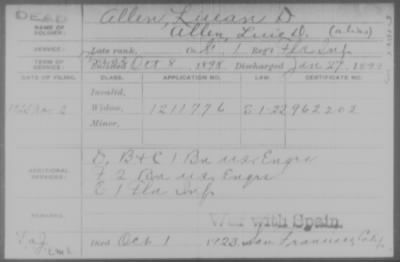 DEAD
Allen, Lucan D.
NAME OF SOLDIER:
Allen, Luie D. (alias)
SERVICE:
Late rank, Co. C, 1 Reg't Fla Inf.
TERM OF SERVICE:
Enlisted Oct 8 1898 Discharged Jan 27, 1899
DATE OF FILING. CLASS. APPLICATION NO. LAW. CERTIFICATE NO.
Invalid,
Nov 2 Widow, 1211776 5-1-22 962202
Minor,
ADDITIONAL SERVICES:
D, B & C 1 Bn US Engrs
F 2 Bn US Engrs
C 1 Fla Inf
REMARKS:
War with Spain.
Died Oct 1 1923, San Francisco, Calif.